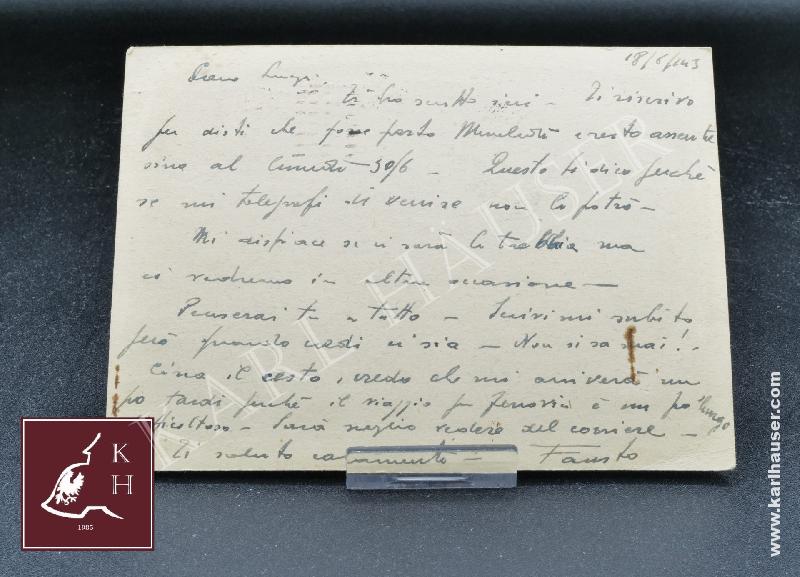 18/6/43
Caro Luigi.
ti ho scritto ieri - Ti riscrivo
per dirti che forse parto Mercoledì e resto assente
sino al 30/6 - Questo ti dico perché
se mi telegrafi di venire non lo potrò -
Mi dispiace se ci sarà la trebbia ma
ci vedremo in altra occasione -
Penserai tu a tutto - Scrivimi subito
però quando credi ci sia - Non si sa mai!.
Circa il cesto, credo che mi arriverà un
po tardi perché il viaggio per ferrovia è un po lungo
- Sarà meglio vedere del corriere -
Ti saluto caramente - Fausto
KARL HAUSER
K
H
1985
www.karlhauser.com